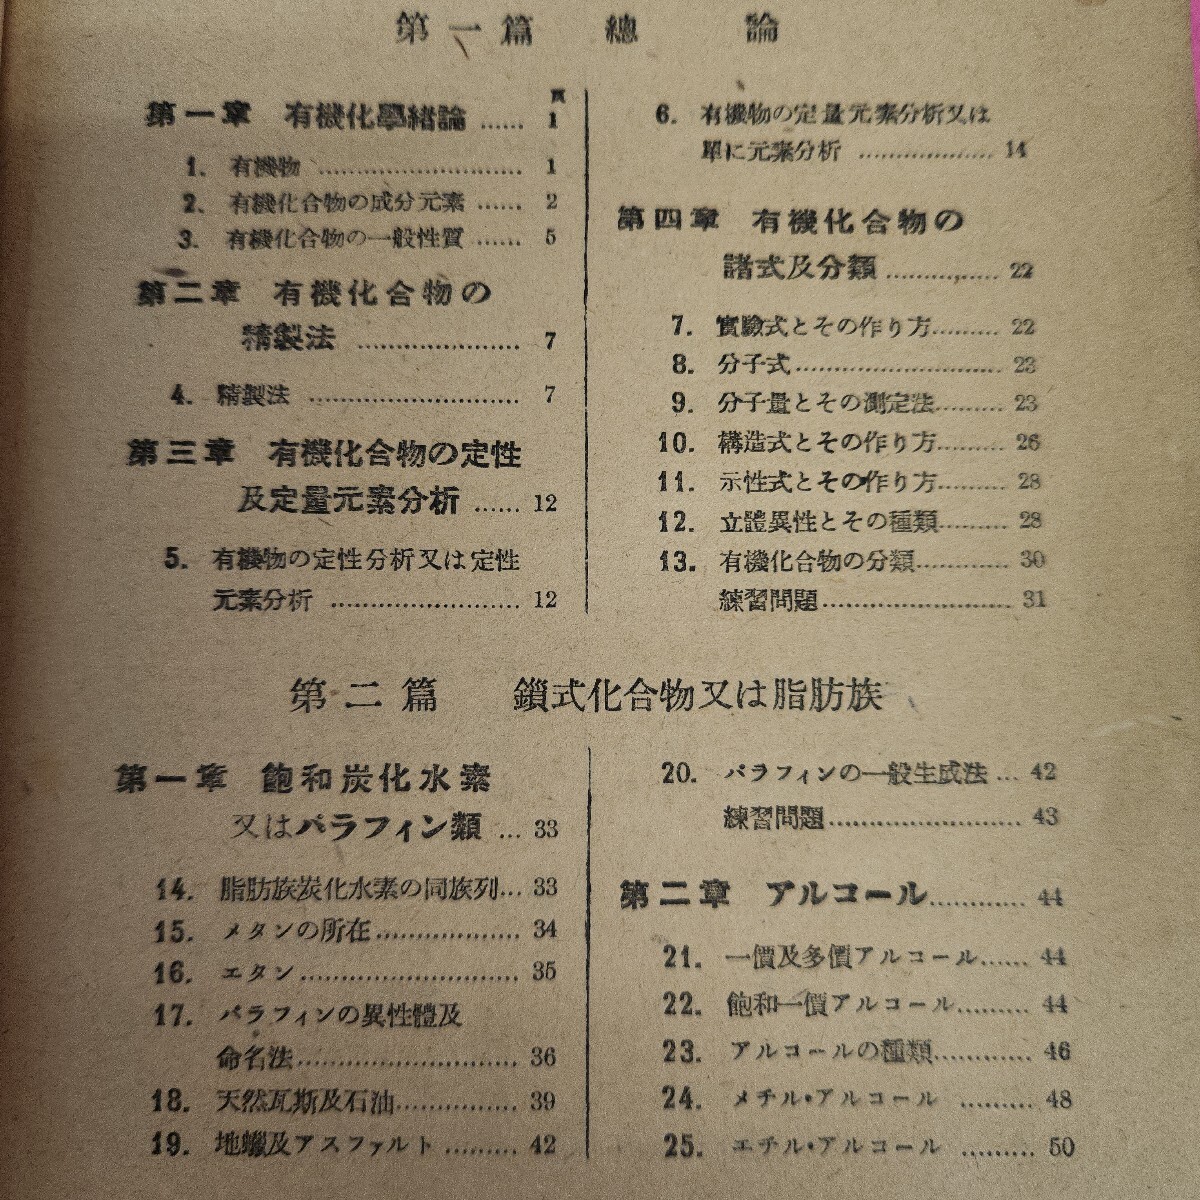 第一篇 總論
頁
第一章 有機化學緒論 …… 1
1. 有機物 ……………………… 1
2. 有機化合物の成分元素 …… 2
3. 有機化合物の一般性質 …… 5
第二章 有機化合物の
精製法 ………………… 7
4. 精製法 ……………………… 7
第三章 有機化合物の定性
及定量元素分析 …… 12
5. 有機物の定性分析又は定性
元素分析 …………………… 12
6. 有機物の定量元素分析又は
單に元素分析 ……………… 14
第四章 有機化合物の
諸式及分類 ………… 22
7. 實驗式とその作り方……… 22
8. 分子式……………………… 23
9. 分子量とその測定法……… 23
10. 構造式とその作り方……… 26
11. 示性式とその作り方……… 28
12. 立體異性とその種類……… 28
13. 有機化合物の分類………… 30
練習問題…………………… 31
第二篇 鎖式化合物又は脂肪族
第一章 飽和炭化水素
又はパラフィン類 … 33
14. 脂肪族炭化水素の同族列… 33
15. メタンの所在……………… 34
16. エタン……………………… 35
17. パラフィンの異性體及
命名法……………………… 36
18. 天然瓦斯及石油…………… 39
19. 地蠟及アスファルト ……… 42
20. パラフィンの一般生成法 … 42
練習問題…………………… 43
第二章 アルコール………… 44
21. 一價及多價アルコール…… 44
22. 飽和一價アルコール……… 44
23. アルコールの種類………… 46
24. メチル・アルコール ……… 48
25. エチル・アルコール ……… 50